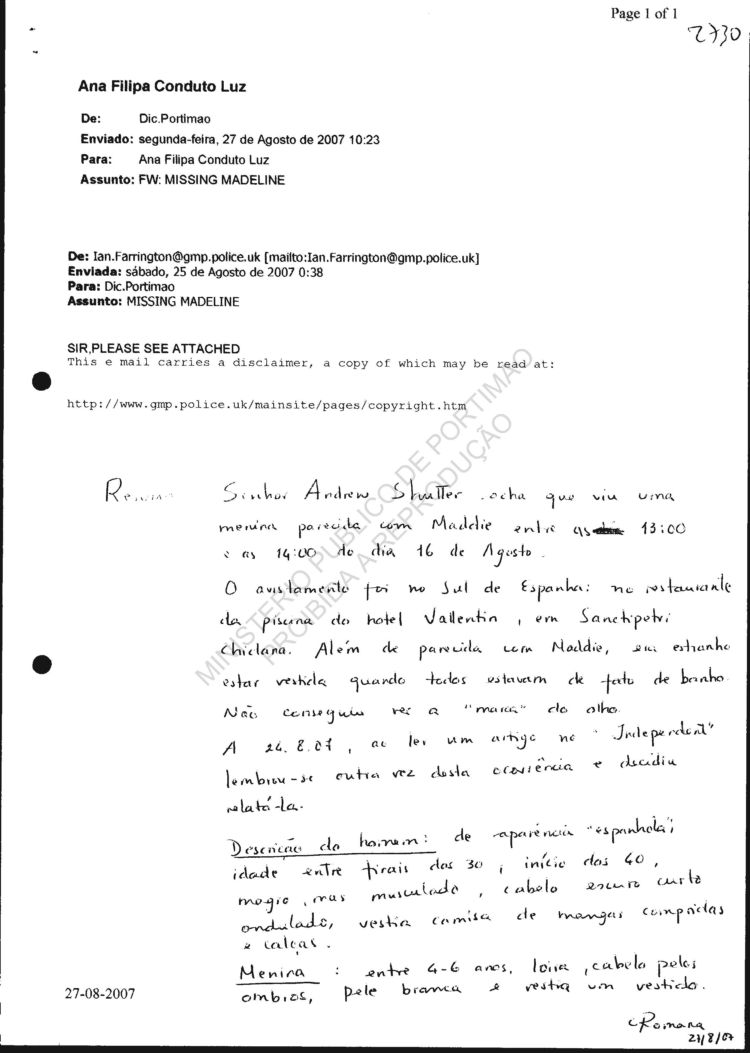 Page 1 of 1
2730
Ana Filipa Conduto Luz
De: Dic.Portimao
Enviado: segunda-feira, 27 de Agosto de 2007 10:23
Para: Ana Filipa Conduto Luz
Assunto: FW: MISSING MADELINE
De: Ian.Farrington@gmp.police.uk [mailto:Ian.Farrington@gmp.police.uk]
Enviada: sábado, 25 de Agosto de 2007 0:38
Para: Dic.Portimao
Assunto: MISSING MADELINE
SIR,PLEASE SEE ATTACHED
This e mail carries a disclaimer, a copy of which may be read at:
http://www.gmp.police.uk/mainsite/pages/copyright.htm
MINISTERIO PUBLICO DE PORTIMAO
PROIBIDA A REPRODUÇÃO
Senhor Andrew acha que viu uma
menina parecida com Maddie entre as 13:00
e as 14:00 do dia 16 de Agosto.
O avistamento foi no Sul de Espanha: no restaurante
da piscina do hotel Vallentin, em Sanctipetri
Chiclana. Além de parecida com Maddie, estranho
estar vestida quando todos estavam de fato de banho.
Não conseguiu ver a "marca" do olho.
A 24.8.07, ao ler um artigo no "Independent"
lembrou-se outra vez desta ocorrência e decidiu
relatá-la.
Descrição do homem: de aparência "espanhola",
idade entre finais dos 30, início dos 40,
magro, mas musculado, cabelo escuro curto
ondulado, vestia camisa de mangas compridas
e calças.
Menina: entre 4-6 anos, loira, cabelo pelos
ombros, pele branca e vestia um vestido.
27-08-2007
Romana
27/8/07